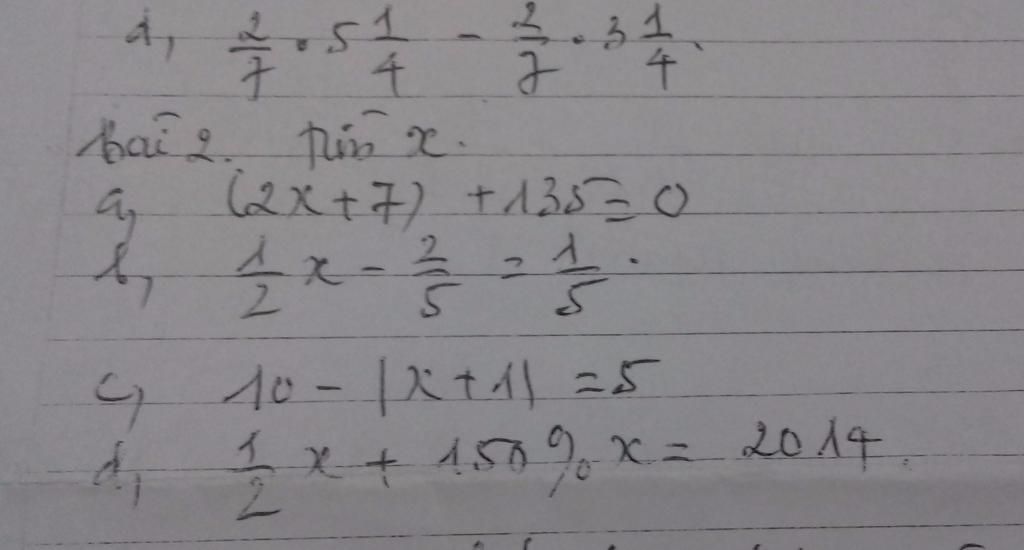 d, 2/7 . 5 1/4 - 2/7 . 3 1/4.
bài 2. tìm x.
a, (2x+7) +135=0
b, 1/2 x - 2/5 = 1/5.
c, 10 - |x+1| =5
d, 1/2 x + 150% x = 2014.